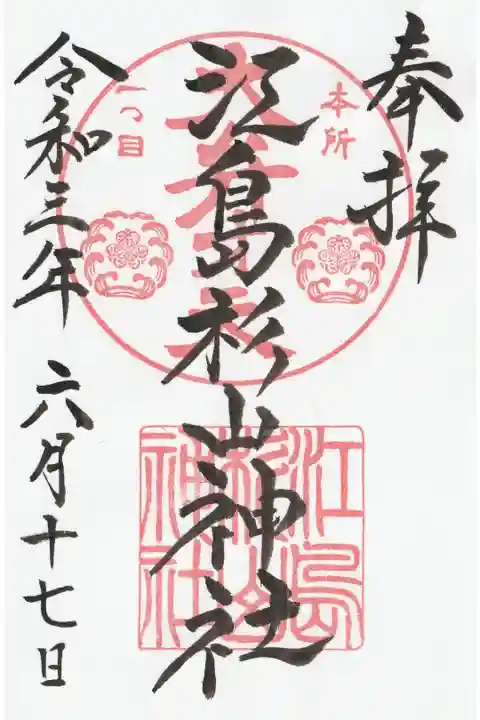 奉拝
本所
一つ目
江島杉山神社
江島
杉山
神社
令和三年
六月十七日